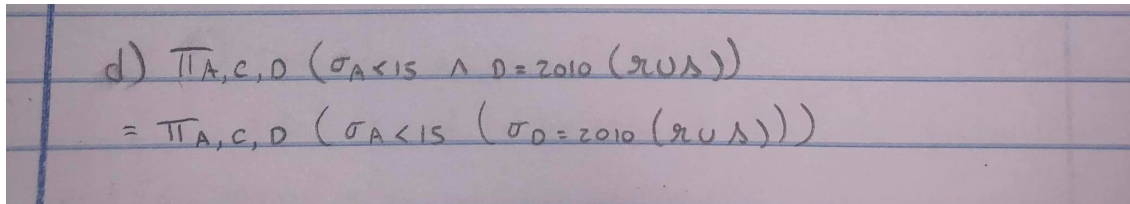 d) π A, C, D (σ A < 15 ∧ D = 2010 (r ∪ s))
= π A, C, D (σ A < 15 (σ D = 2010 (r ∪ s)))